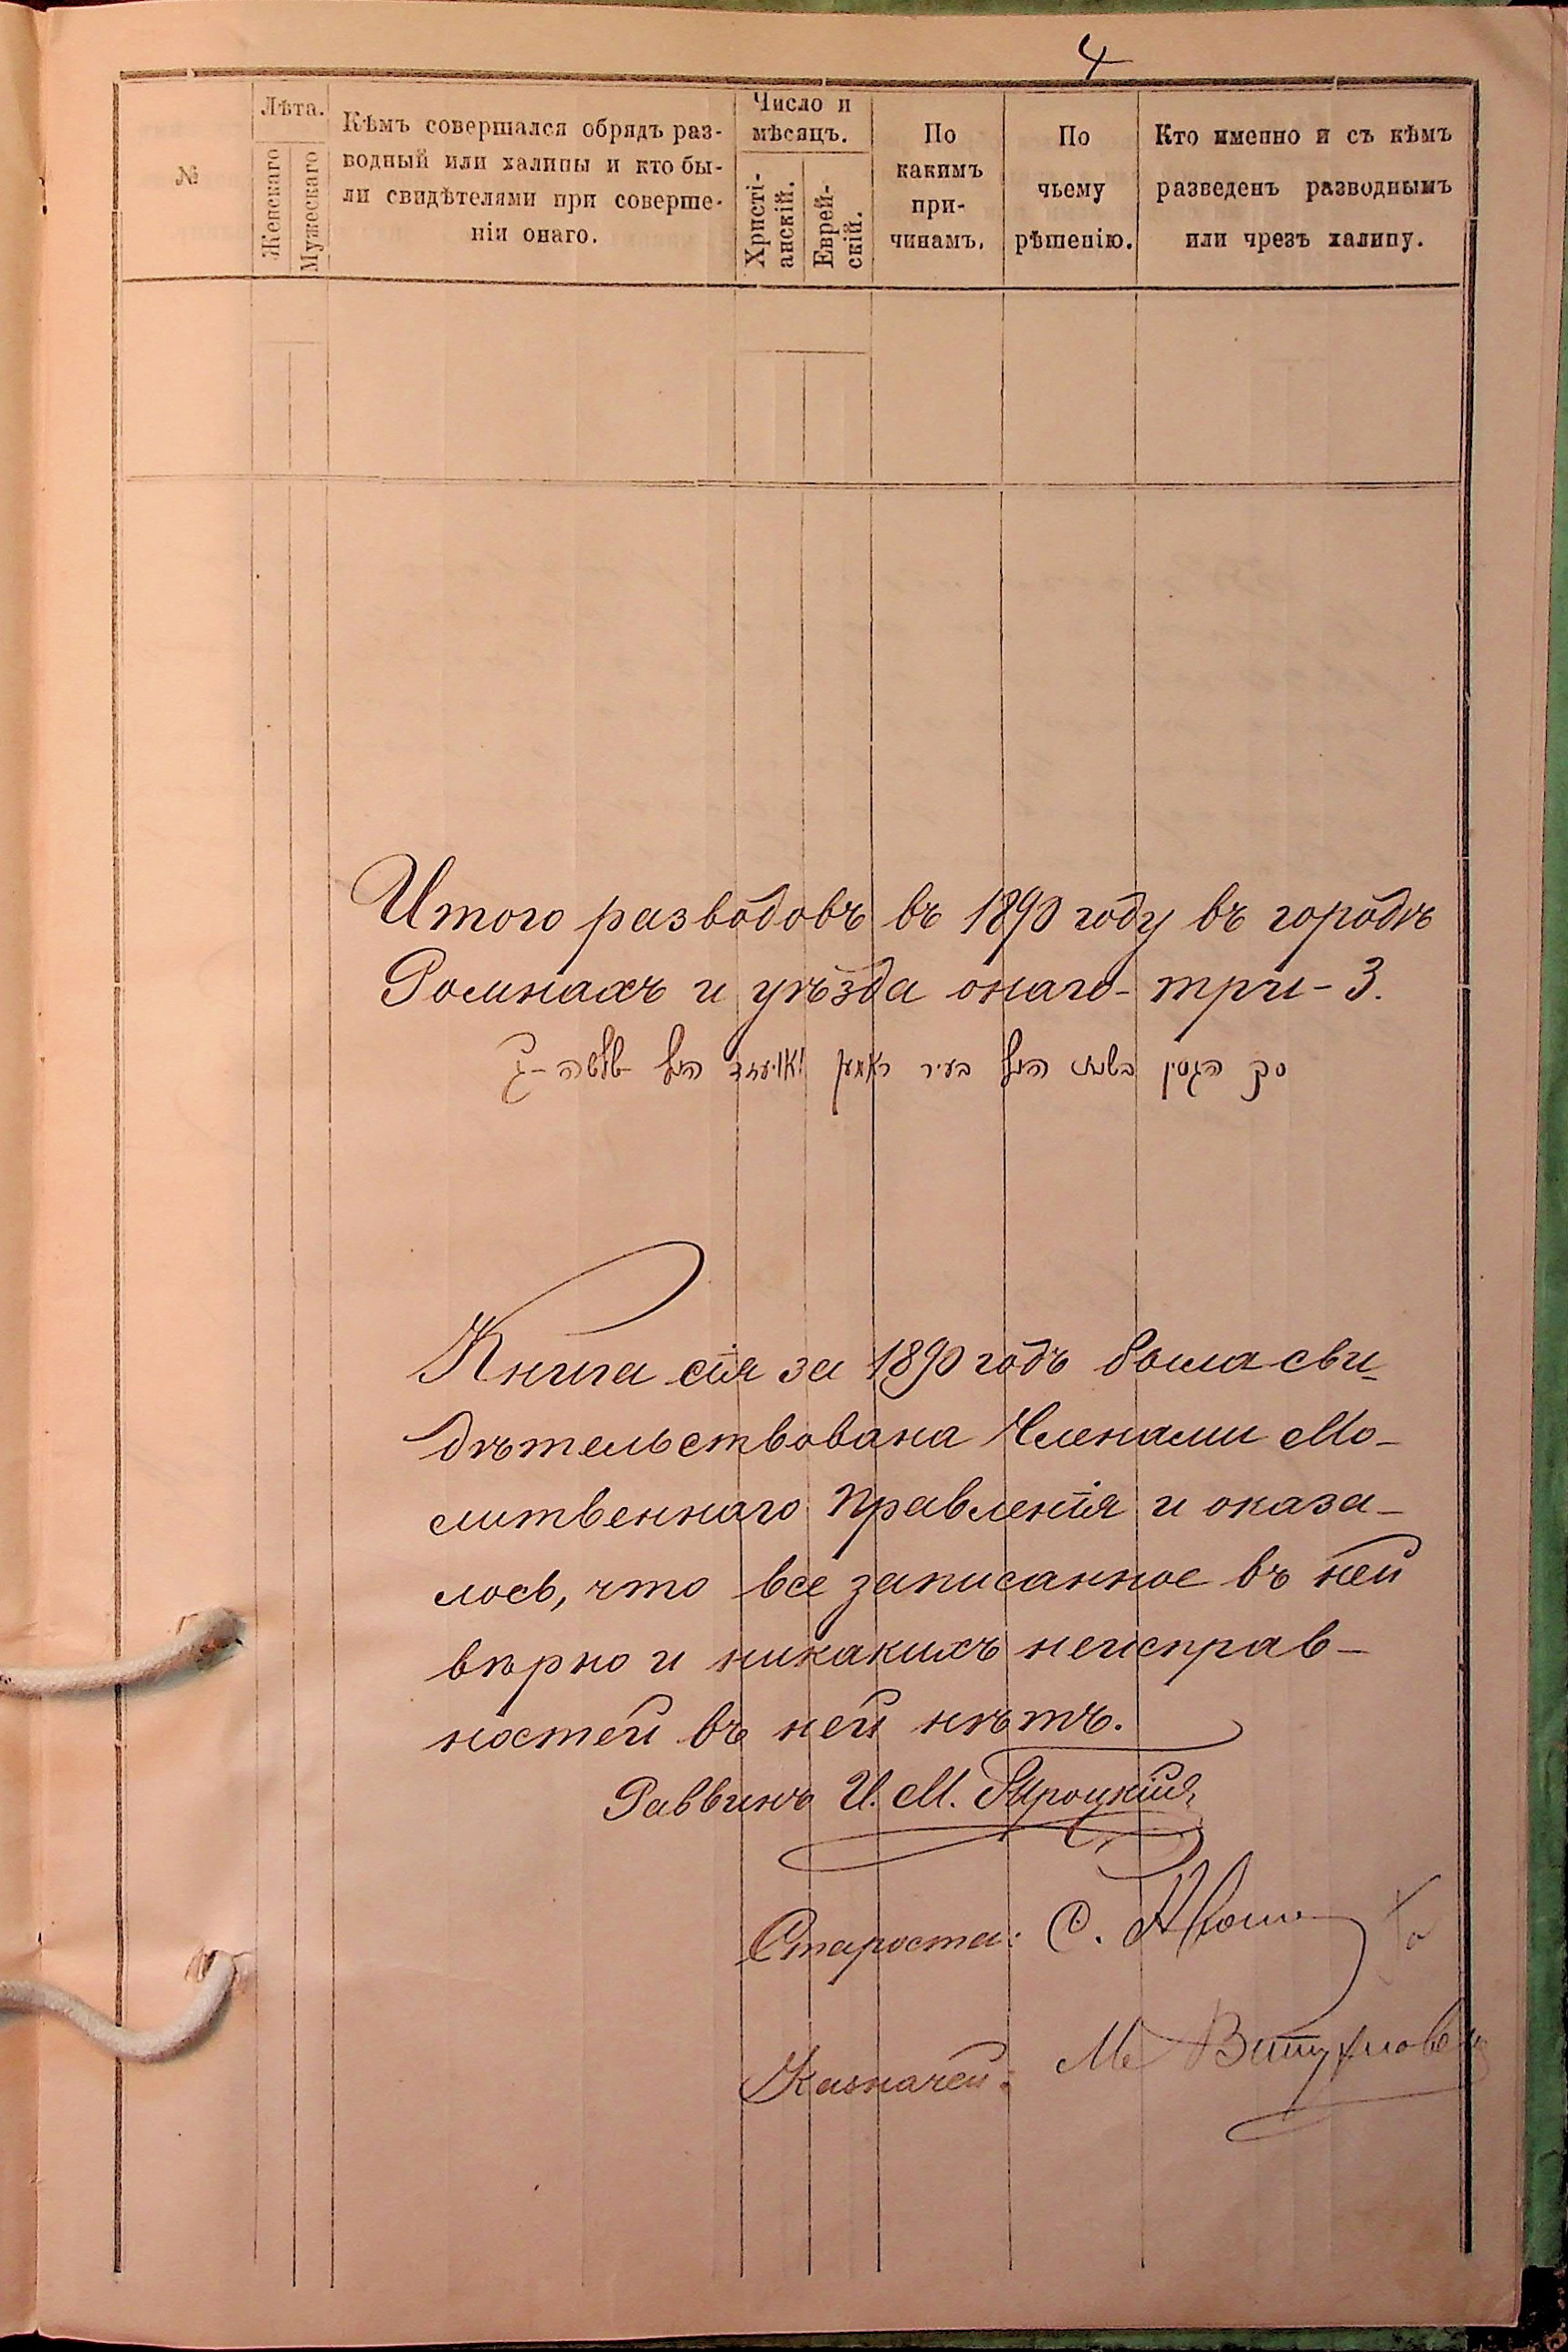 4
№
Лѣта.
Женскаго
Мужескаго
Кѣмъ совершался обрядъ раз-
водный или халицы и кто бы-
ли свидѣтелями при соверше-
ніи онаго.
Число и
мѣсяцъ.
Христі-
анскій.
Еврей-
скій.
По
какимъ
при-
чинамъ.
По
чьему
рѣшенію.
Кто именно и съ кѣмъ
разведенъ разводнымъ
или чрезъ халицу.
Итого разводовъ въ 1890 году въ городѣ
Ромнахъ и уѣзда онаго - три - 3.
סך הגטין בשנת הנ״ל בעיר ראמען הנ״ל שלשה - ג
Книга сія за 1890 годъ была сви-
дѣтельствована Членами Мо-
литвеннаго Правленія и оказа-
лось, что все записанное въ ней
вѣрно и никакихъ неисправ-
ностей въ ней нѣтъ.
Раввинъ И. М.
Староста: С.
Казначей: М.